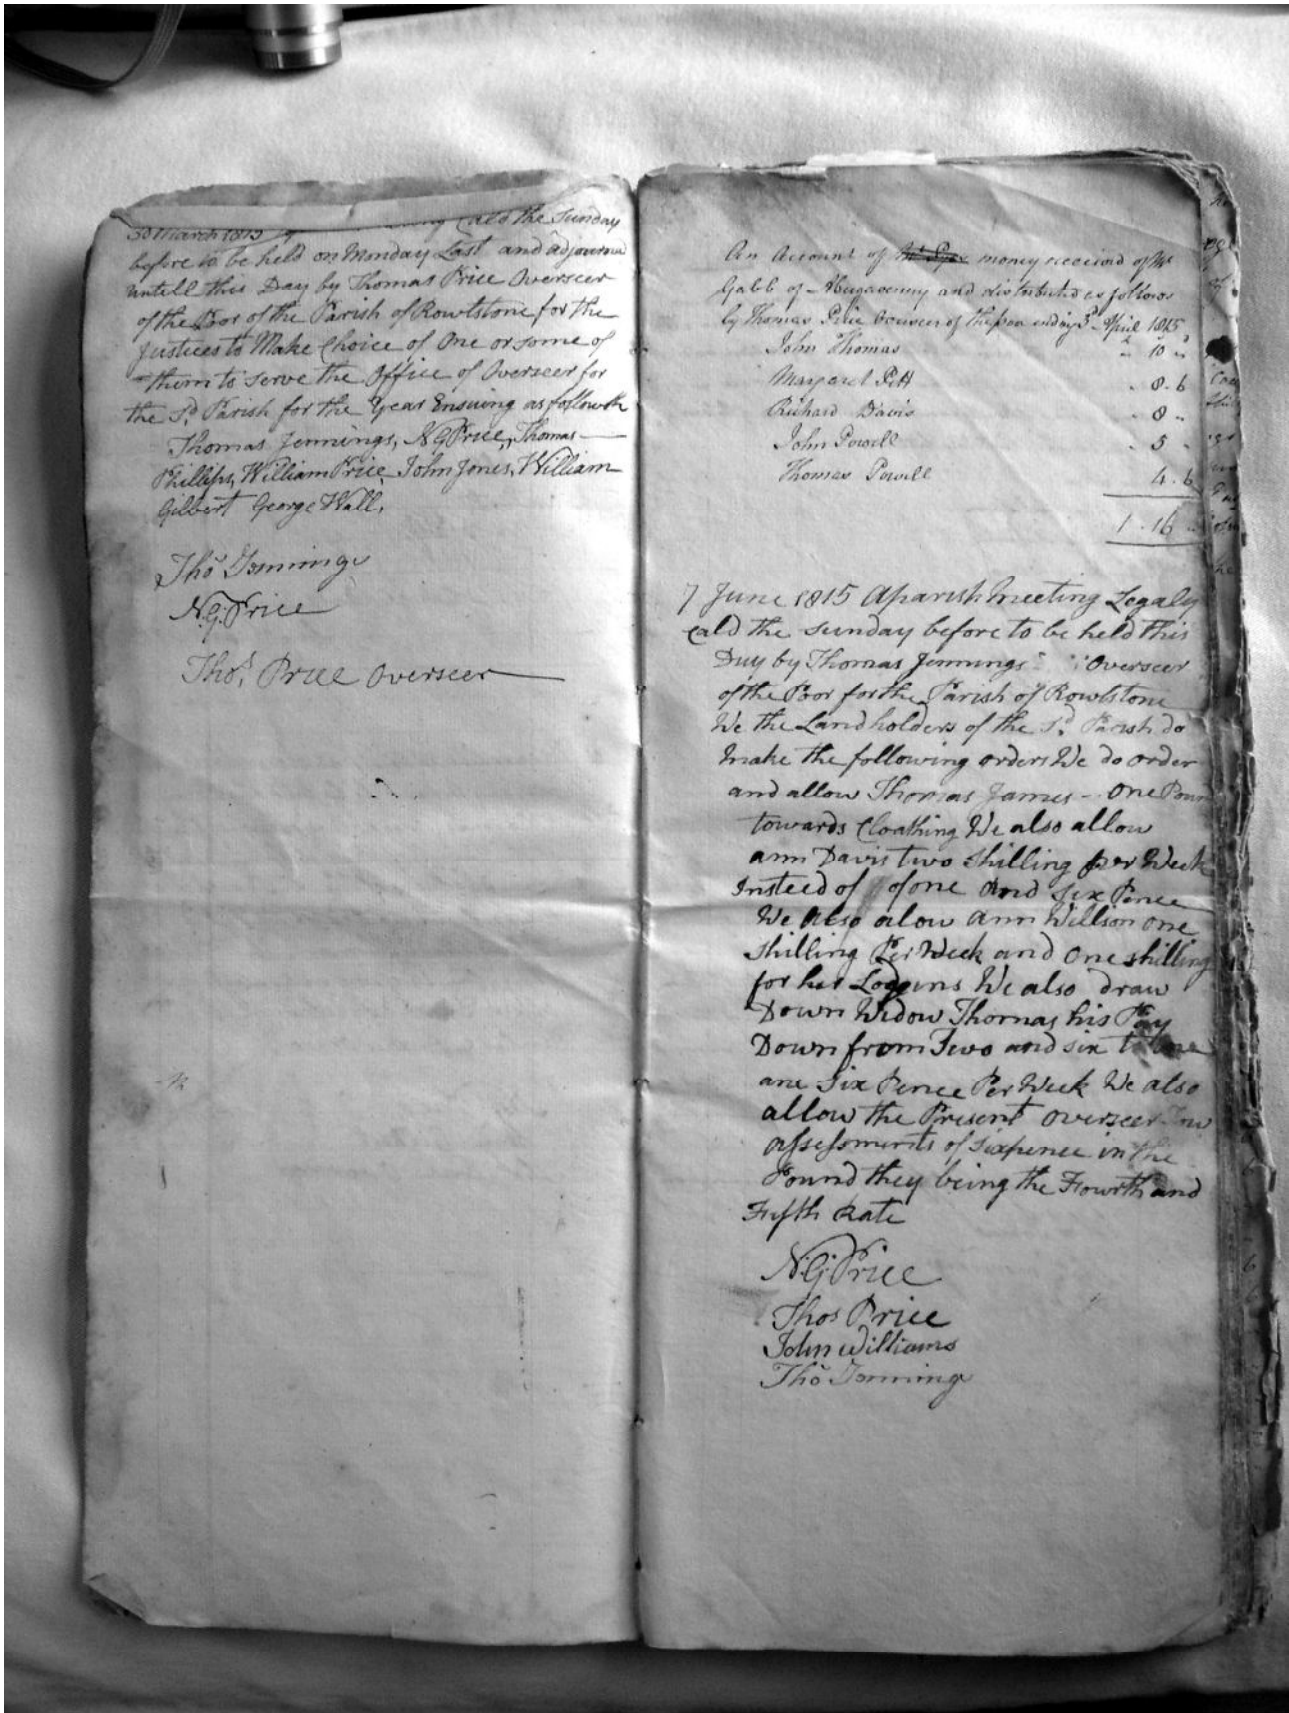 30 March 1815 cald the Sunday
before to be held on Monday Last and adjournd
untill this Day by Thomas Price Overseer
of the Poor of the Parish of Rowlstone for the
Justices to Make Choice of One or some of
them to serve the Office of Overseer for
the Sd. Parish for the Year Ensuing as followth
Thomas Jennings, N G Price, Thomas
Phillips, William Price, John Jones, William
Gilbert George Wall,
Tho Jennings
N.G. Price
Thos. Price Overseer
An Account of money received of Mr
Gabb of Abergavenny and distributed as follows
by Thomas Price Overseer of the poor ending 3d April 1815
John Thomas " 10 "
Margaret Pitt " 8 . 6
Richard Davis " 8 "
John Powell " 5 "
Thomas Powell 4 . 6
1 . 16 "
7 June 1815 A parish Meeting Legaly
cald the sunday before to be held this
Day by Thomas Jennings Overseer
of the Poor for the Parish of Rowlstone
We the Landholders of the Sd. Parish do
Make the following orders We do order
and allow Thomas James - One Poun
towards Cloathing We also allow
ann Davis two shilling per Week
Insteed of of one And Six Pence
We Also alow Ann Willson one
shilling Per Week and One shilling
for her Logins We also draw
Down Widow Thomas his Pay
Down from Two and six to One
ane Six Pence Per Week We also
allow the Present overseer Tow
assessments of Sixpence in the
Pound they being the Fowrth and
Fifth Rate
N.G. Price
Thos Price
John Williams
Tho Jennings